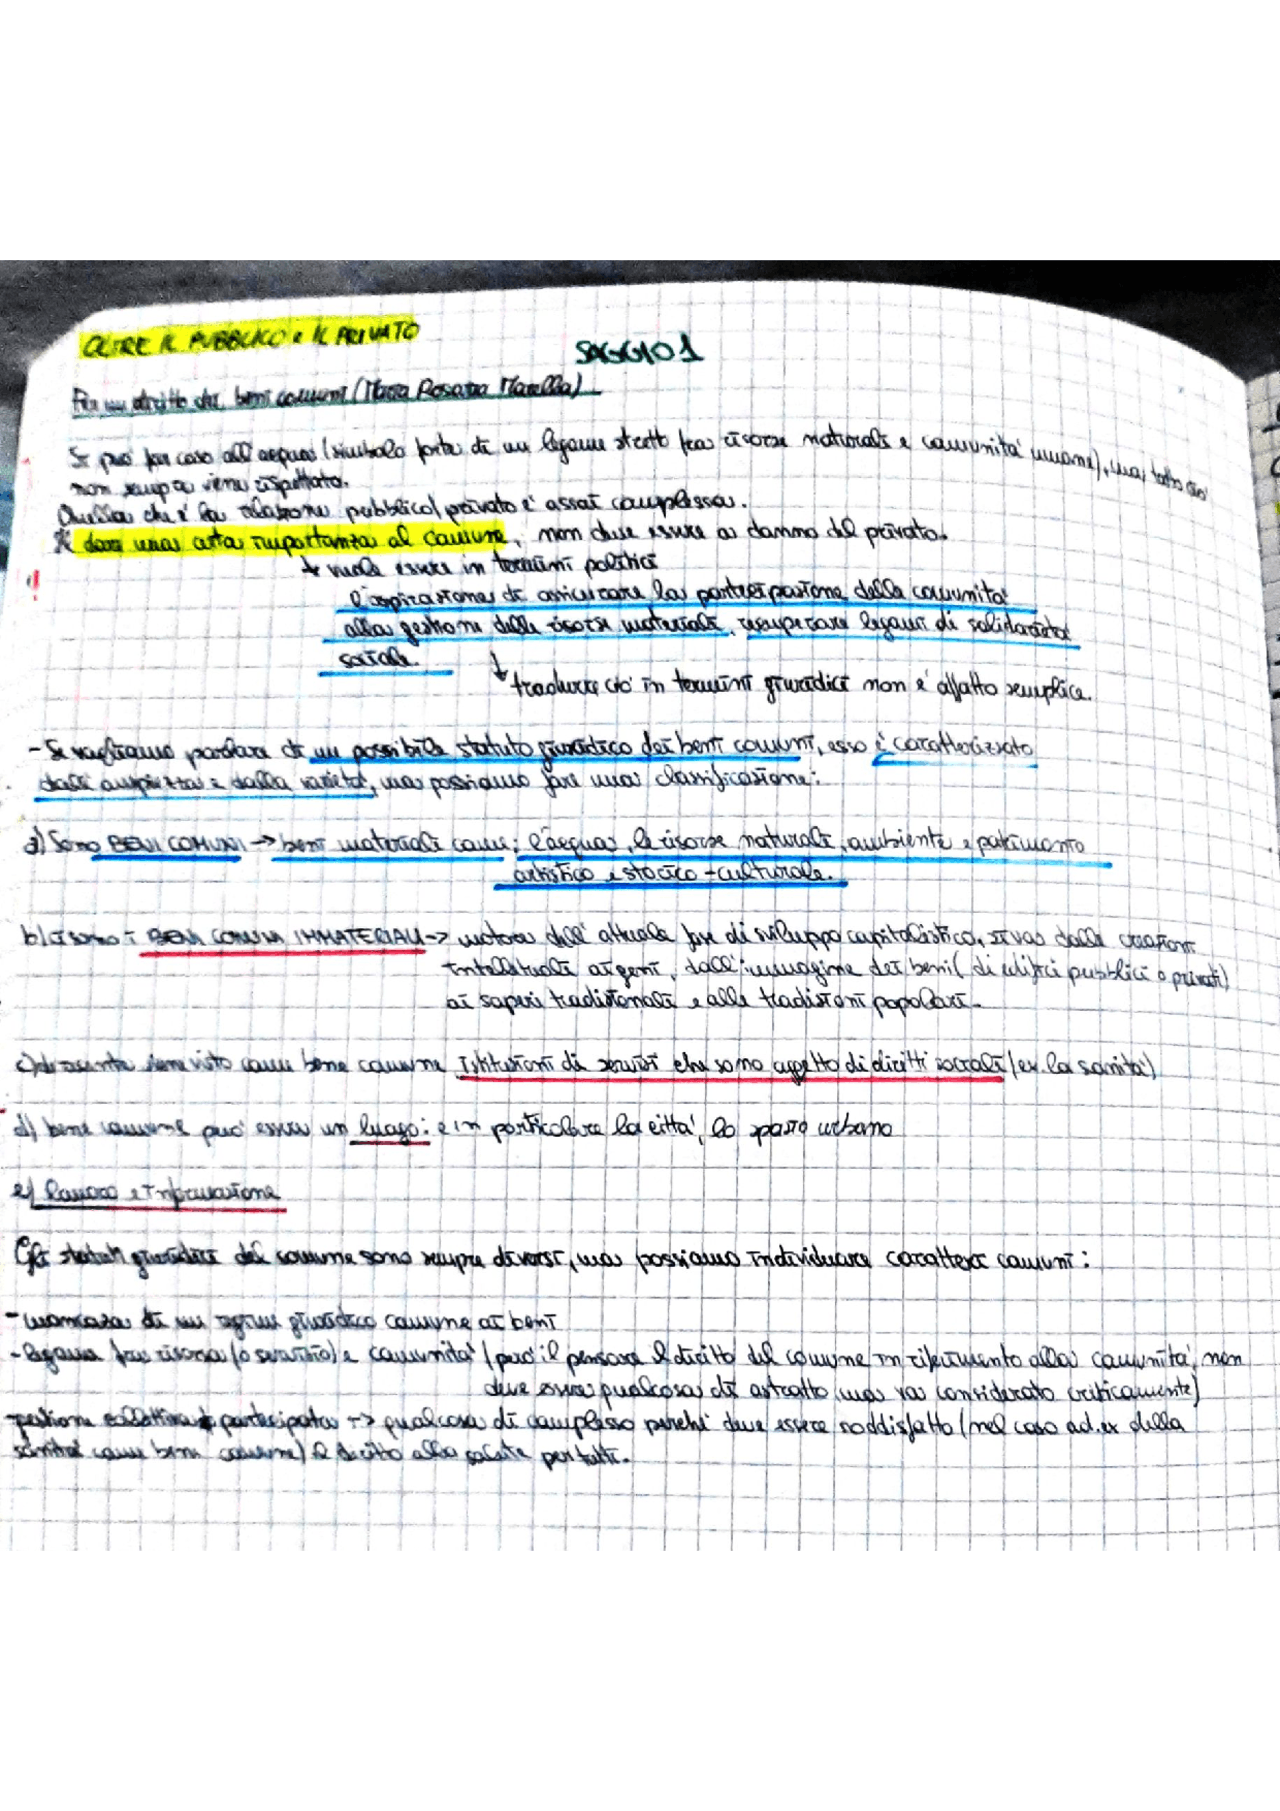 OLTRE IL PUBBLICO e IL PRIVATO
SAGGIO 1
Per un diritto dei beni comuni (Maria Rosaria Marella)
Si può far caso all'acqua (simbolo forte di un legame stretto fra risorse naturali e comunità umane), ma, tutto ciò
non sempre viene rispettato.
Quella che è la relazione pubblico/privato è assai complessa.
* dare una certa importanza al comune, non deve essere a danno del privato.
vuole essere in termini politici
l'aspirazione di assicurare la partecipazione della comunità
alla gestione delle risorse materiali, recuperare legami di solidarietà
sociale.
tradurre ciò in termini giuridici non è affatto semplice.
- Se vogliamo parlare di un possibile statuto giuridico dei beni comuni, esso è caratterizzato
dall'ampiezza e dalla varietà, ma possiamo fare una classificazione:
a) Sono BENI COMUNI → beni materiali come: l'acqua, le risorse naturali, ambiente e patrimonio
artistico e storico-culturale.
b) ci sono i BENI COMUNI IMMATERIALI → motore dell'attuale fase di sviluppo capitalistico, si va dalle creazioni
intellettuali ai geni, dall'immagine dei beni (di edifici pubblici o privati)
ai saperi tradizionali e alle tradizioni popolari.
c) di recente viene visto come bene comune Istituzioni di servizi che sono oggetto di diritti sociali (ex. la sanità)
d) bene comune può essere un luogo: e in particolare la città, lo spazio urbano
e) lavoro e informazione
Gli statuti giuridici del comune sono sempre diversi, ma possiamo individuare caratteri comuni:
- mancanza di un regime giuridico comune ai beni
- legame fra risorsa (o servizio) e comunità (può il pensare il diritto del comune in riferimento alla comunità, non
deve essere qualcosa di astratto ma va considerato criticamente)
- gestione collettiva partecipata → qualcosa di complesso perché deve essere soddisfatto (nel caso ad.ex della
sanità come bene comune) il diritto alla salute per tutti.